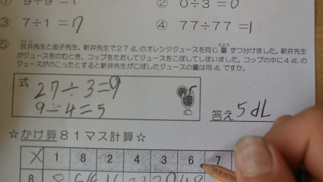 ① 9÷9=1 ② 0÷3=0
③ 7÷1=7 ④ 77÷77=1
⑤ 荒井先生と金子先生、新井先生で27dLのオレンジジュースを同じ量ずつ分けました。新井先生
がジュースをのむとき、コップをたおしてジュースをこぼしてしまいました。コップの中に4dLの
ジュースがのこったとすると新井先生がこぼしたジュースの量は何dLですか。
式 27÷3=9
9-4=5
答え 5dL
☆かけ算81マス計算☆
X 1 8 2 4 3 6 7
8 8